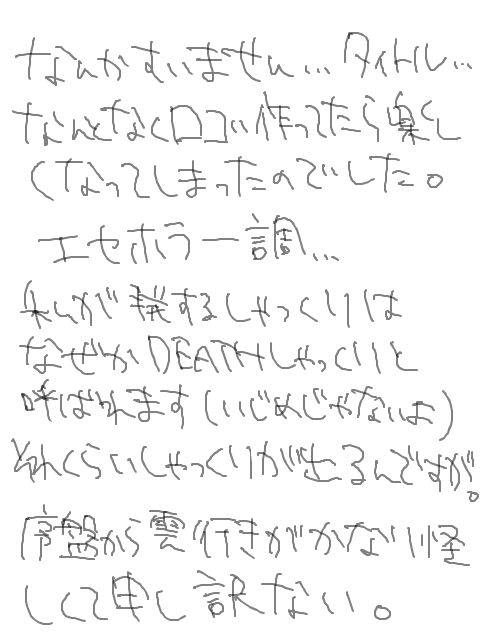 なんかすいません…タイトル…
なんとなくロゴい作ってたら楽し
くなってしまったのでした。
エセホラー調…
私が発するしゃっくりは
なぜかDEATHしゃっくりと
呼ばれます(いじめじゃないよ)
それくらいしゃっくりが出るんですが。
序盤から雲行きがかなり怪
しくて申し訳ない。